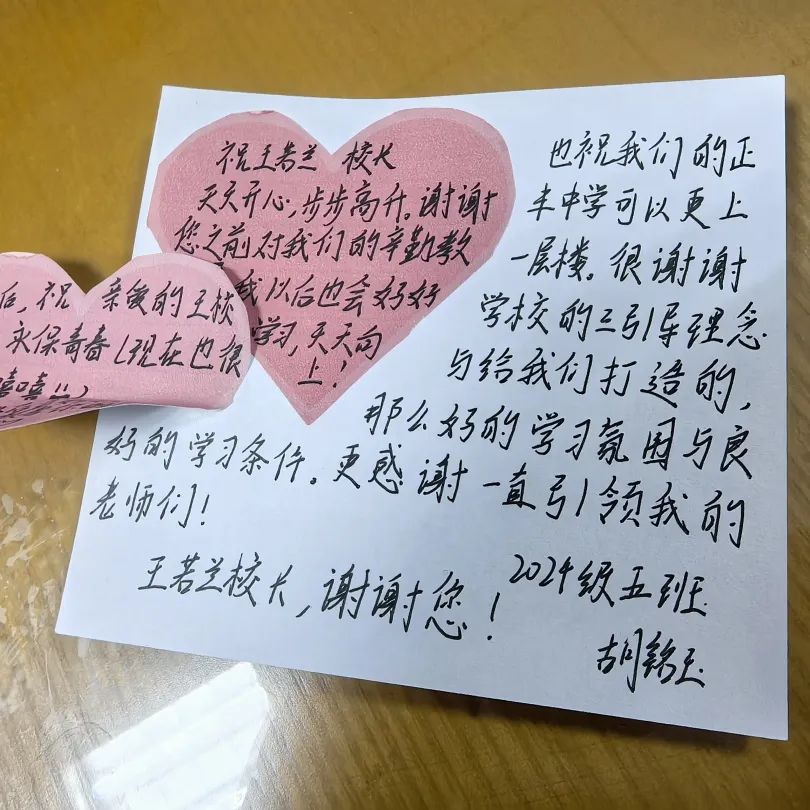 祝王若兰 校长
天天开心,步步高升。谢谢
您之前对我们的辛勤教
我以后也会好好
学习,天天向
上!
后,祝亲爱的王校
永保青春(现在也很
嘻嘻!!)
也祝我们的正
丰中学可以更上
一层楼。很谢谢
学校的三引导理念
与给我们打造的,
那么好的学习氛围与良
好的学习条件。更感谢一直引领我的
老师们!
王若兰校长,谢谢您!
2024级五班
胡铭玉